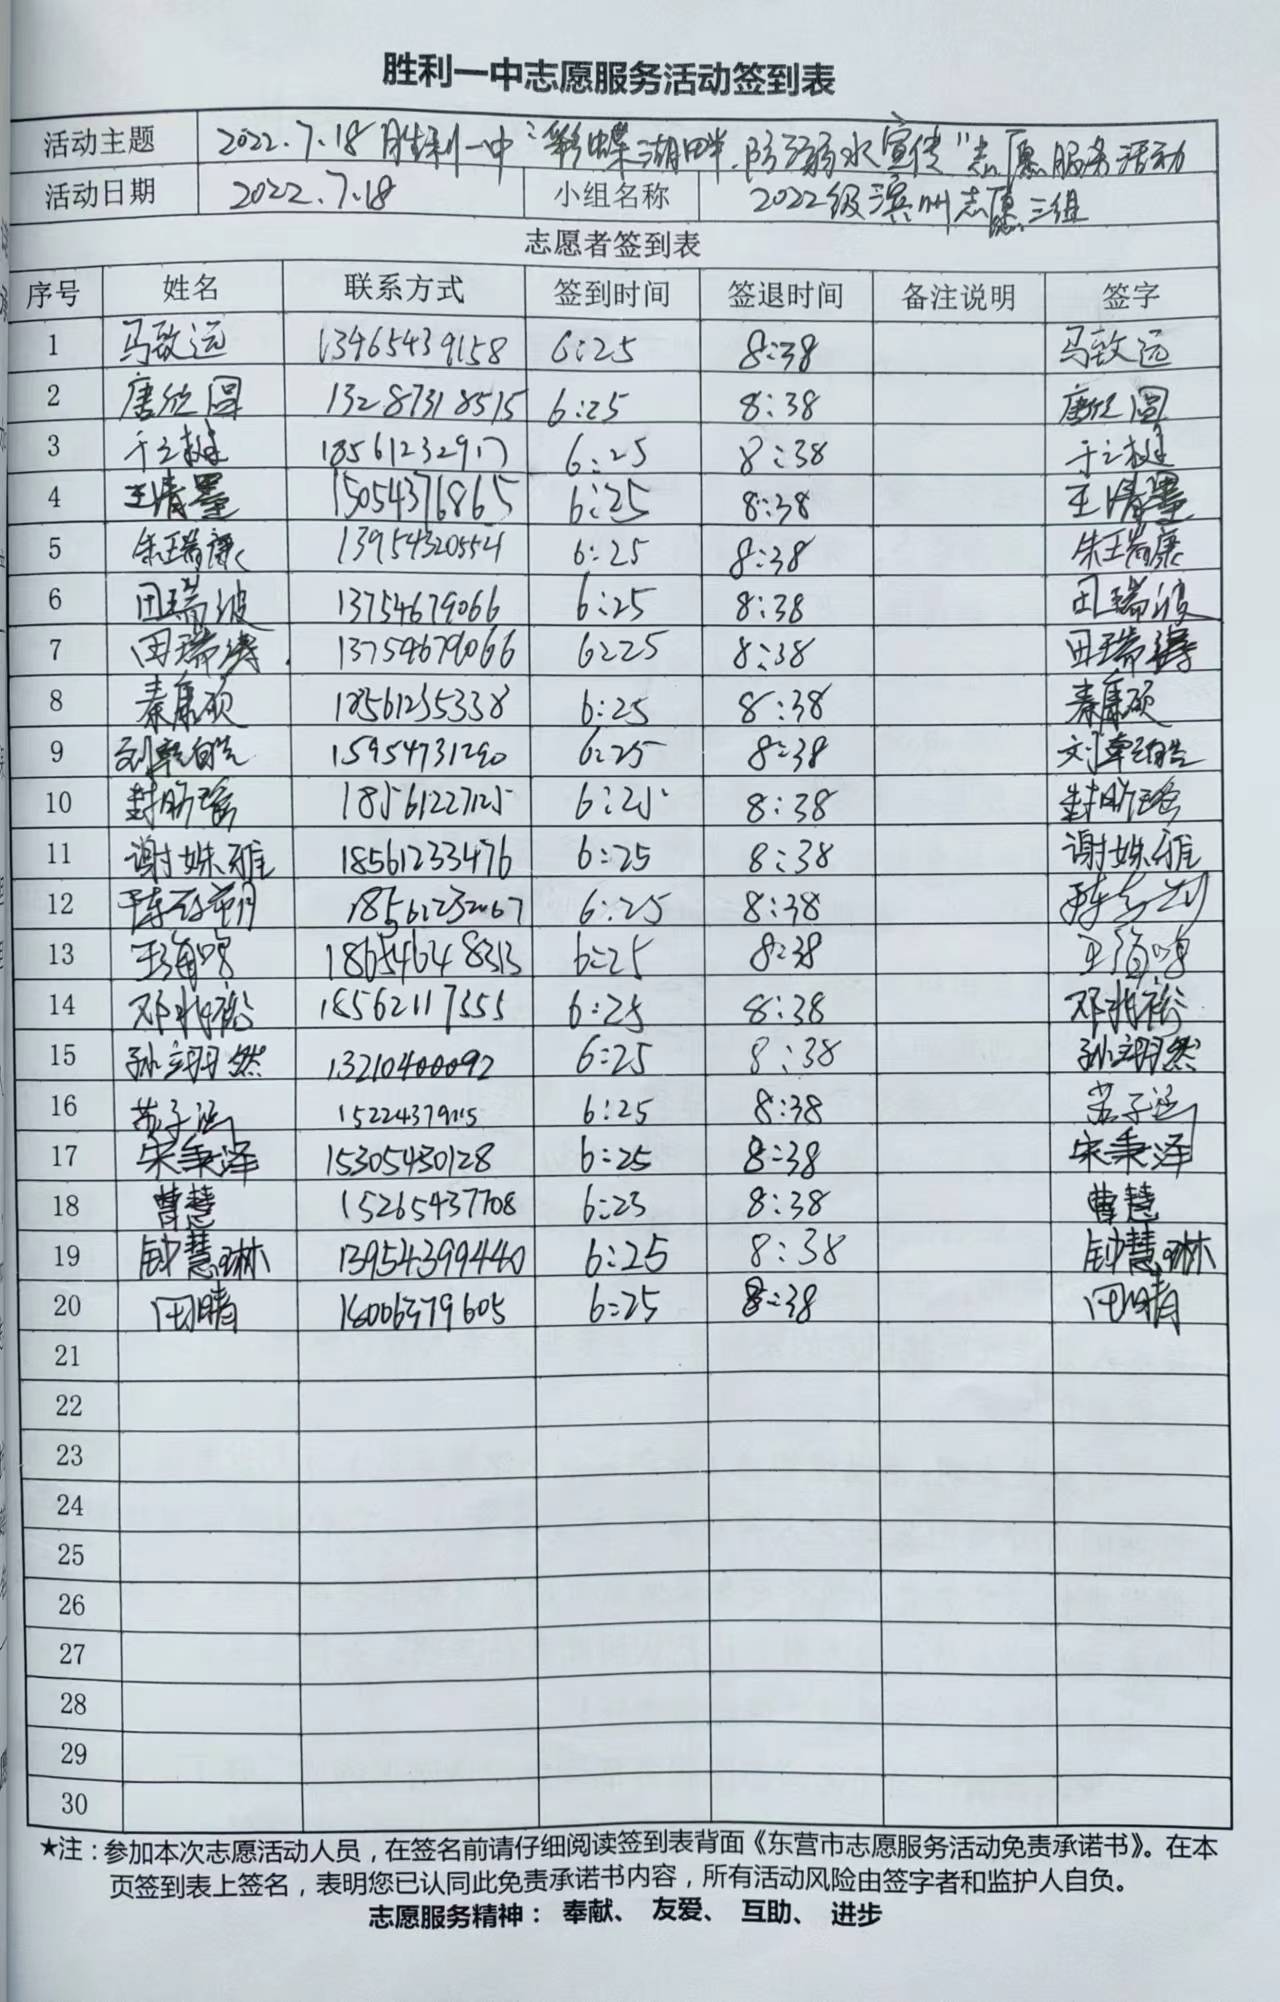 胜利一中志愿服务活动签到表
活动主题 2022.7.18 胜利一中"彩蝶湖畔,防溺水宣传"志愿服务活动
活动日期 2022.7.18 小组名称 2022级滨州志愿三组
志愿者签到表
序号 姓名 联系方式 签到时间 签退时间 备注说明 签字
1 马致远 13965439158 6:25 8:38 马致远
2 唐欣圆 13287318515 6:25 8:38 唐欣圆
3 于之樾 18561232917 6:25 8:38 于之樾
4 王清墨 15054376865 6:25 8:38 王清墨
5 朱瑞康 13954320554 6:25 8:38 朱瑞康
6 田瑞波 13754679066 6:25 8:38 田瑞波
7 田瑞涛 13754679066 6:25 8:38 田瑞涛
8 秦康硕 18561235338 6:25 8:38 秦康硕
9 刘乾皓 15954731290 6:25 8:38 刘乾皓
10 封昕瑶 18561227125 6:25 8:38 封昕瑶
11 谢姝雅 18561233476 6:25 8:38 谢姝雅
12 6:25 8:38
13 王海鸣 18654648313 6:25 8:38 王海鸣
14 邓兆裕 18562117555 6:25 8:38 邓兆裕
15 孙翊然 13210400092 6:25 8:38 孙翊然
16 苏子涵 15224379115 6:25 8:38 苏子涵
17 宋秉泽 15305430128 6:25 8:38 宋秉泽
18 曹慧 15265437708 6:25 8:38 曹慧
19 钟慧琳 13954399440 6:25 8:38 钟慧琳
20 田晴 6:25 8:38 田晴
21
22
23
24
25
26
27
28
29
30
★注：参加本次志愿活动人员，在签名前请仔细阅读签到表背面《东营市志愿服务活动免责承诺书》。在本
页签到表上签名，表明您已认同此免责承诺书内容，所有活动风险由签字者和监护人自负。
志愿服务精神： 奉献、 友爱、 互助、 进步